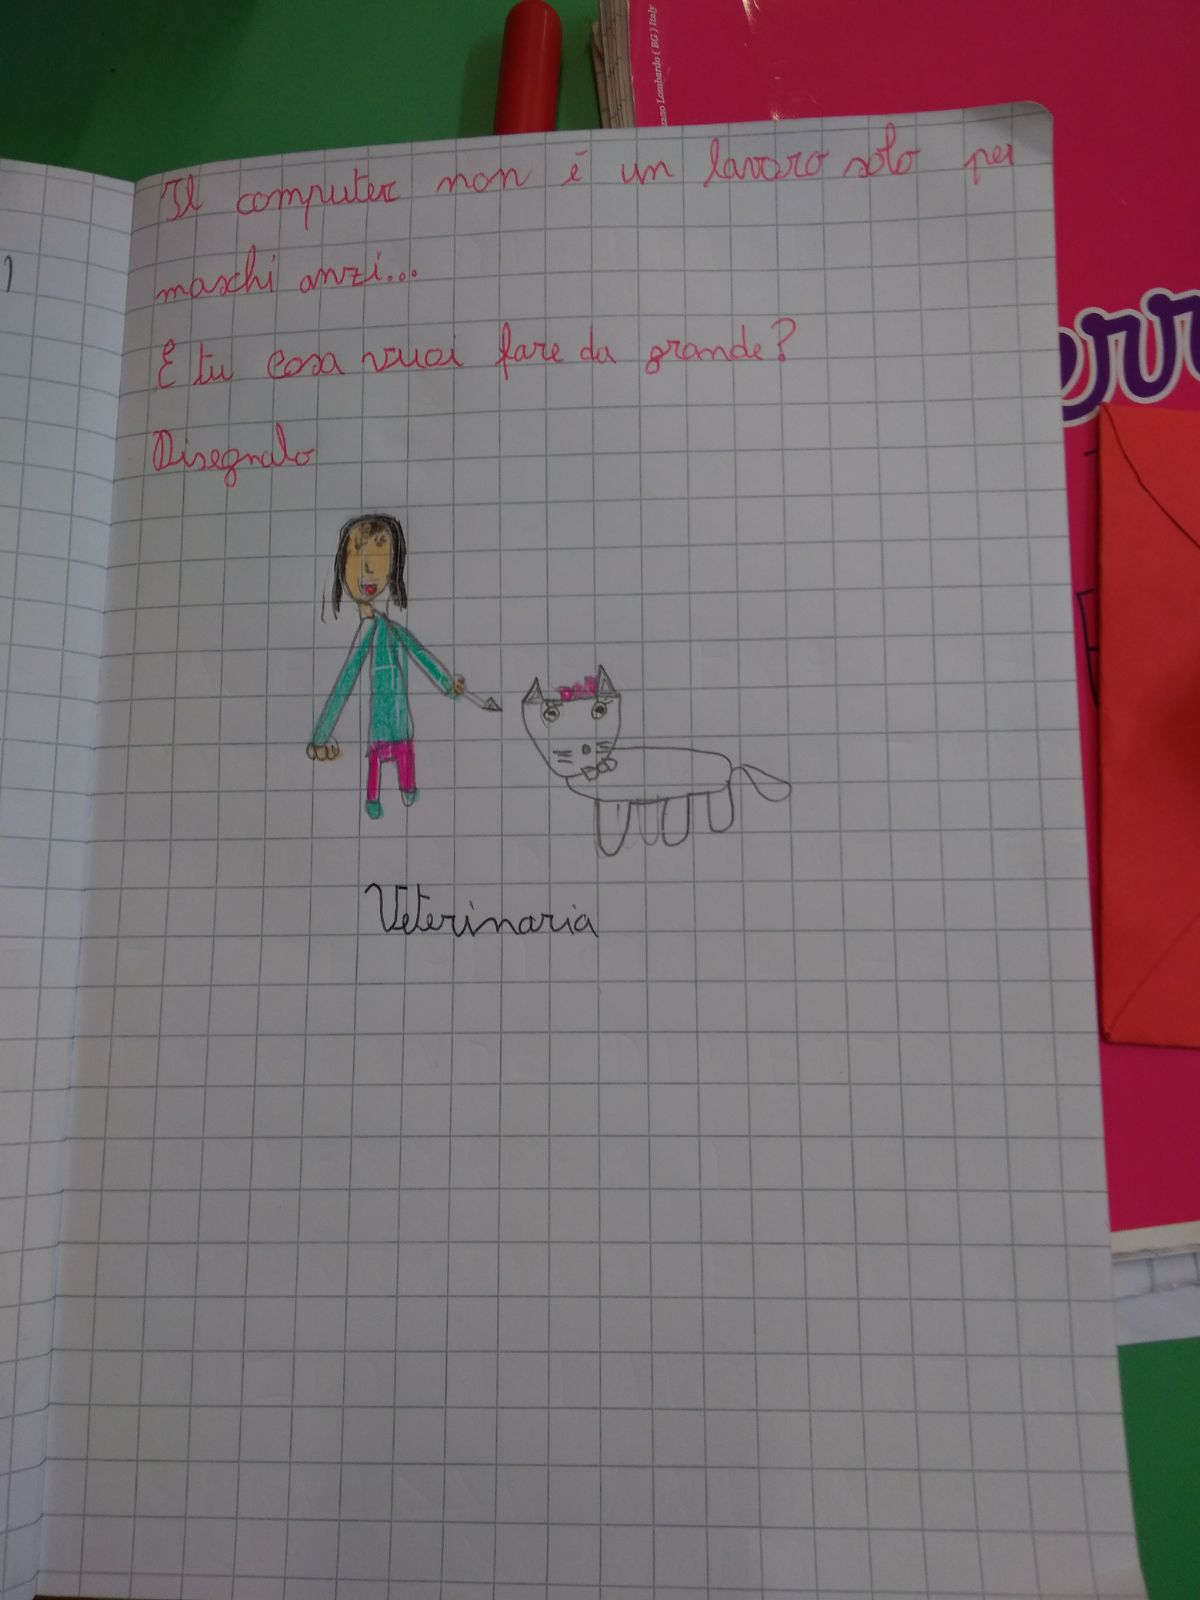 Il computer non è un lavoro solo per
maschi anzi...
E tu cosa vuoi fare da grande?
Disegnalo
Veterinaria
Lombardo (BG) Italy